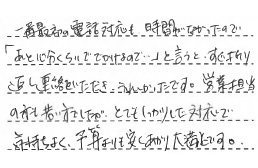 一番最初の電話対応も、時間がなかったので
「あと10分くらいででかけるので…」と言うと、すぐ折り
返し連絡いただき、うれしかったです。営業担当
の方も若い方でしたが、とてもしっかりした対応で
気持ちよく、予算よりも安くあがり大満足です。